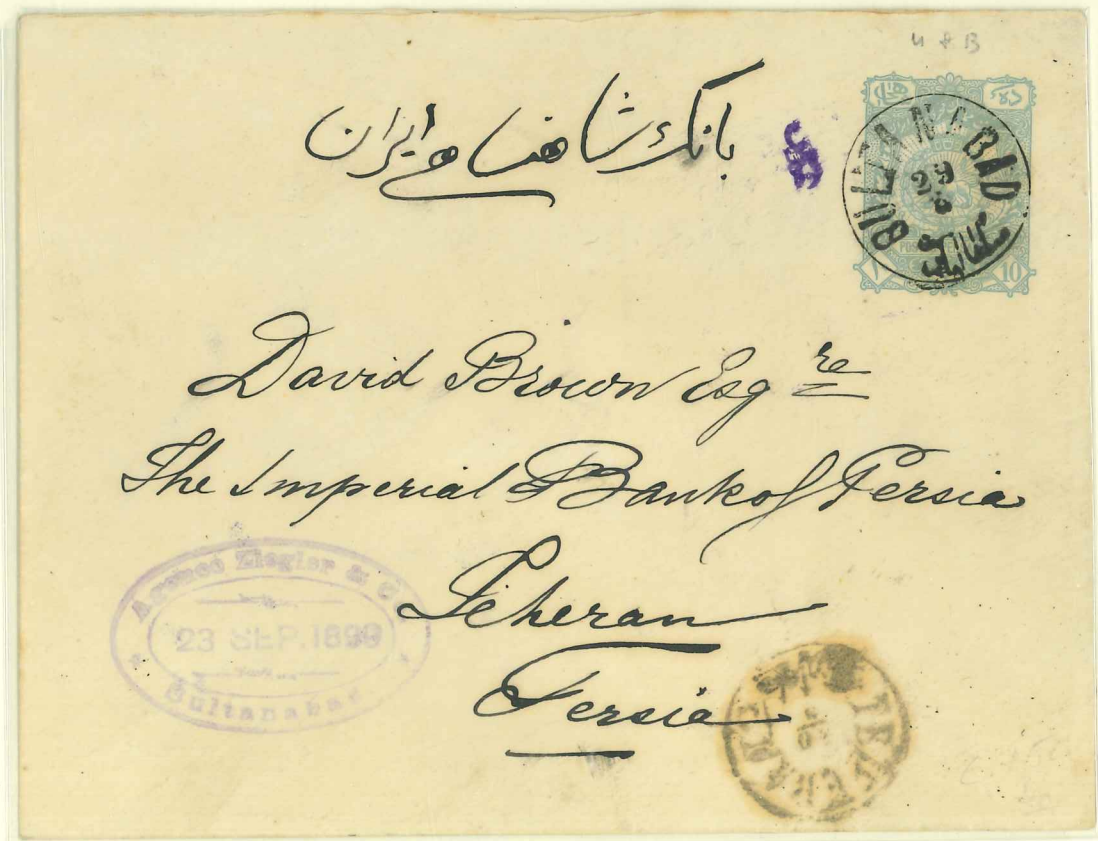 U & B
بانک شاهنشاهی ایران
SULTANABAD
29
10
David Brown Esqre
The Imperial Bank of Persia
Teheran
Persia
Agence Ziegler & Co.
23 SEP. 1899
Sultanabad
TEHERAN